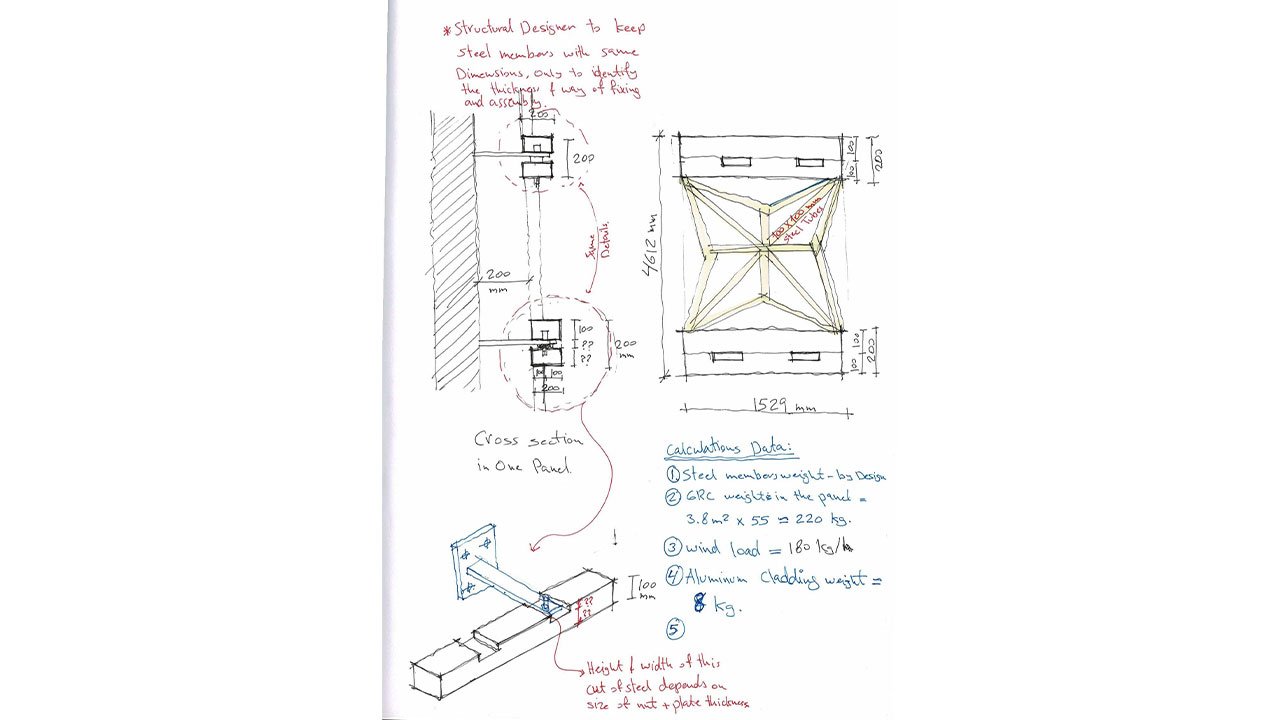 *Structural Designer to keep
steel members with same
Dimensions, only to identify
the thickness & way of fixing
and assembly.
200
200
200
mm
Same
Details.
100
??
??
200
mm
100 100
200
Cross section
in One Panel.
4612 mm
100
100
200
100 X 100 mm
Steel Tubes
100
100
200
1529 mm
Calculations Data:
① Steel members weight - by Design
② GRC weights in the panel =
3.8m² x 55 = 220 kg.
③ wind load = 180 kg/
④ Aluminum Cladding weight =
8 kg.
⑤
100
mm
??
??
Height & width of this
cut of steel depends on
size of nut + plate thickness